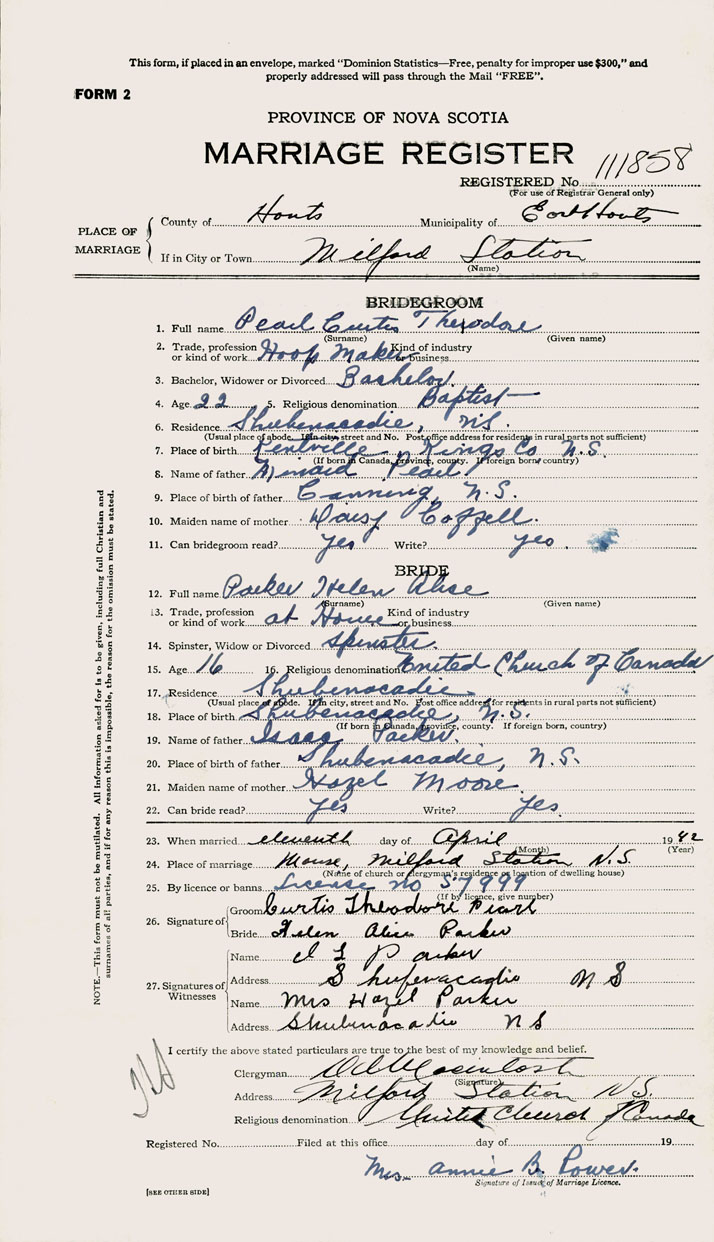 This form, if placed in an envelope, marked "Dominion Statistics—Free, penalty for improper use $300," and
properly addressed will pass through the Mail "FREE".
FORM 2
PROVINCE OF NOVA SCOTIA
MARRIAGE REGISTER
REGISTERED No. 111858
(For use of Registrar General only)
PLACE OF MARRIAGE
County of Hants Municipality of East Hants
If in City or Town Milford Station
(Name)
BRIDEGROOM
1. Full name Pearl Curtis Theodore
(Surname) (Given name)
2. Trade, profession or kind of work Hoop Maker Kind of industry or business
3. Bachelor, Widower or Divorced Bachelor.
4. Age 22 5. Religious denomination Baptist
6. Residence Shubenacadie, N.S.
(Usual place of abode. If in city, street and No. Post office address for residents in rural parts not sufficient)
7. Place of birth Kentville Kings Co N.S.
(If born in Canada, province, county. If foreign born, country)
8. Name of father Pearl.
9. Place of birth of father Canning, N.S.
10. Maiden name of mother Daisy
11. Can bridegroom read? yes Write? yes.
BRIDE
12. Full name Parker Helen Alice
(Surname) (Given name)
13. Trade, profession or kind of work at Home Kind of industry or business
14. Spinster, Widow or Divorced spinster.
15. Age 16 16. Religious denomination United Church of Canada
17. Residence Shubenacadie.
(Usual place of abode. If in city, street and No. Post office address for residents in rural parts not sufficient)
18. Place of birth Shubenacadie, N.S.
(If born in Canada, province, county. If foreign born, country)
19. Name of father Isaac Parker.
20. Place of birth of father Shubenacadie, N.S.
21. Maiden name of mother Hazel Moore.
22. Can bride read? yes Write? yes.
23. When married eleventh day of April 1942
(Month) (Year)
24. Place of marriage Manse, Milford Station N.S.
(Name of church or clergyman's residence or location of dwelling house)
25. By licence or banns License no 57999
(If by licence, give number)
26. Signature of
Groom Curtis Theodore Pearl
Bride Helen Alice Parker
27. Signatures of Witnesses
Name I L Parker
Address Shubenacadie N S
Name Mrs Hazel Parker
Address Shubenacadie N S
I certify the above stated particulars are true to the best of my knowledge and belief.
Clergyman Macintosh
(Signature)
Address Milford Station N.S.
Religious denomination United Church of Canada
Registered No. Filed at this office day of 19
Mrs. Annie B. Power.
Signature of Issuer of Marriage Licence.
[SEE OTHER SIDE]
NOTE.—This form must not be mutilated. All information asked for is to be given, including full Christian and
surnames of all parties, and if for any reason this is impossible, the reason for the omission must be stated.